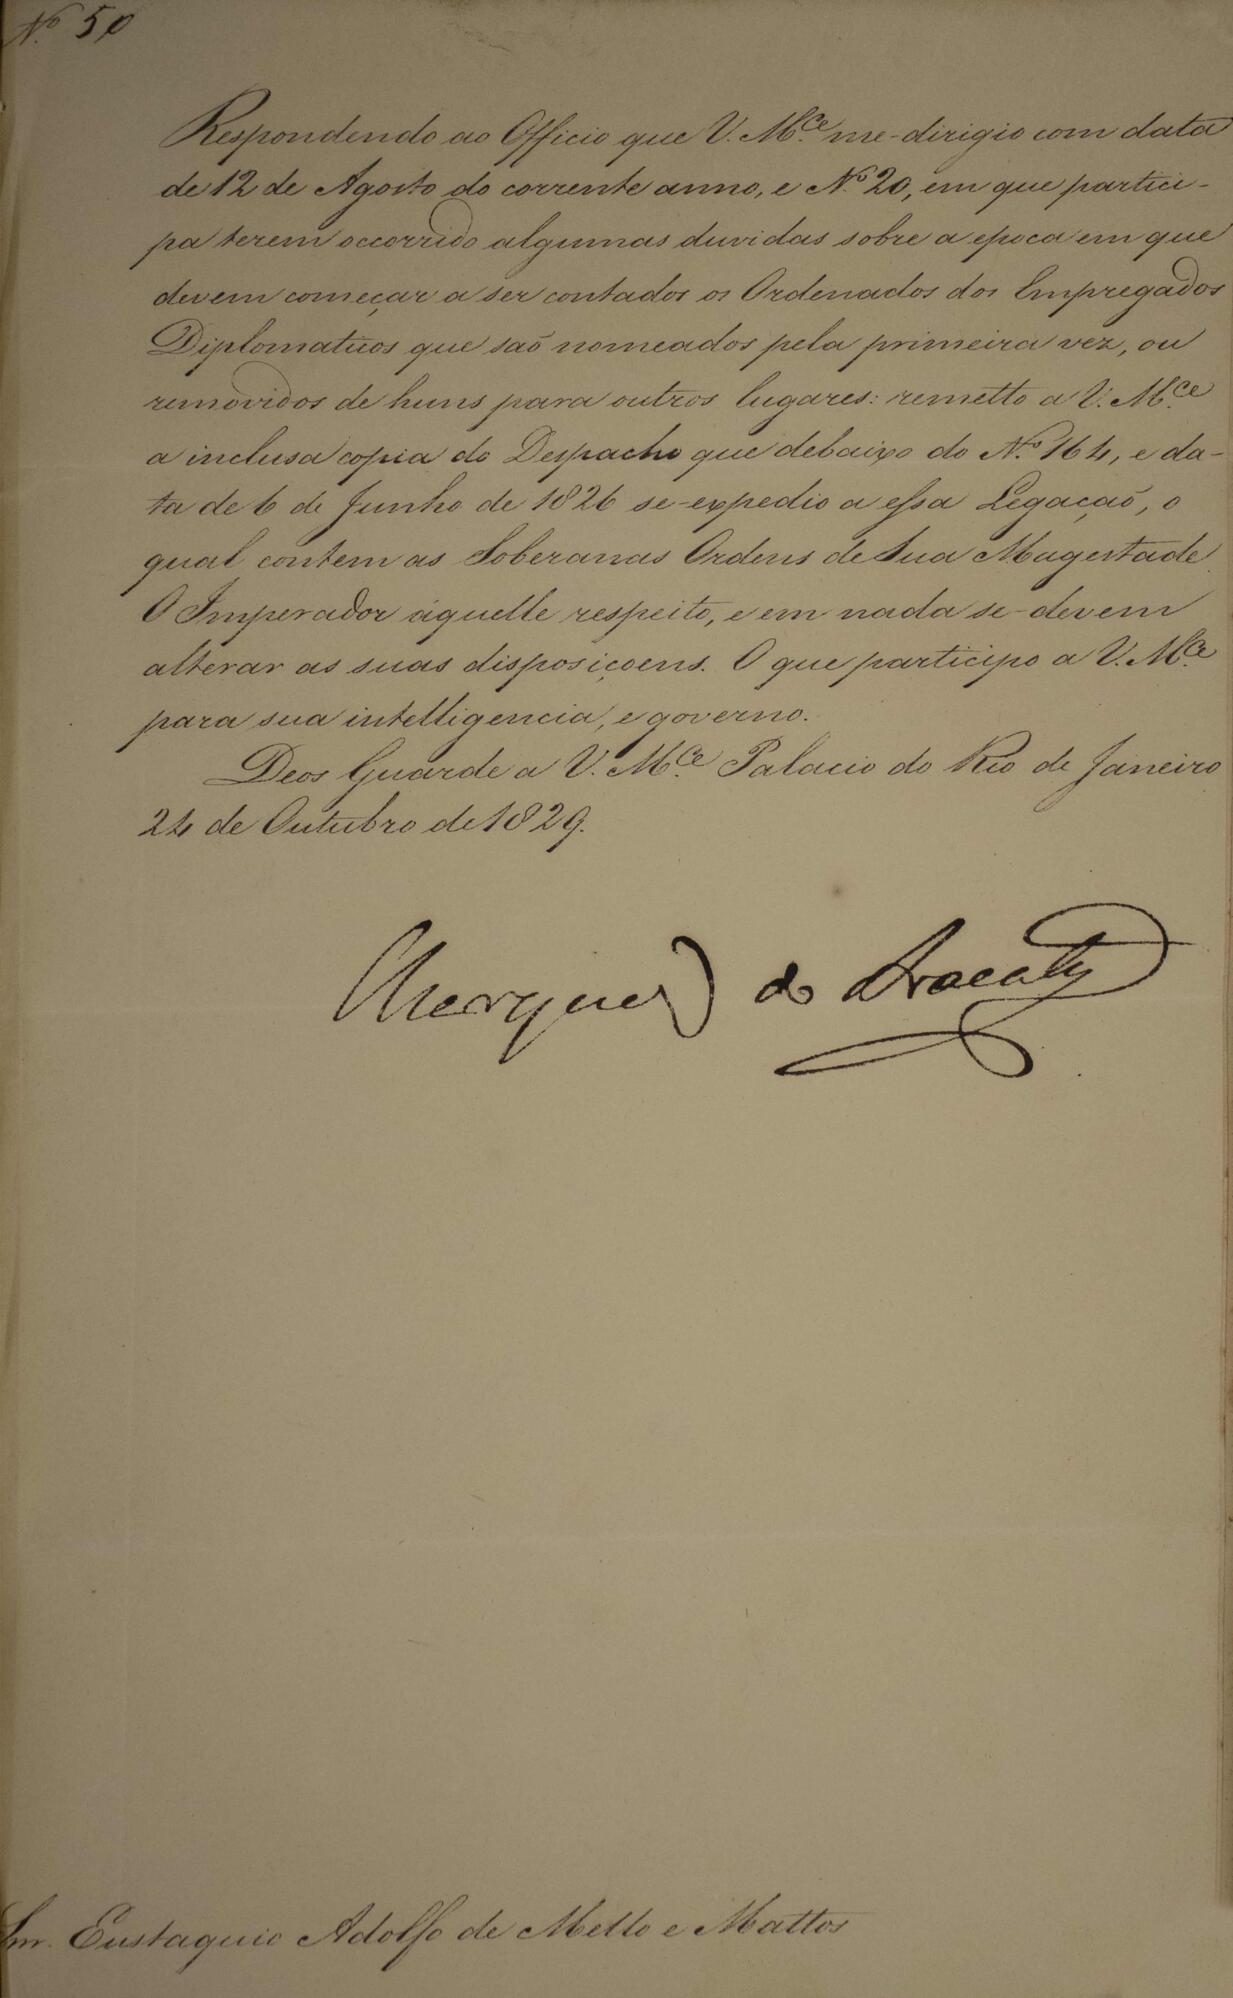 Nº 50
Respondendo ao Officio que V. M.ce me-dirigio com data
de 12 de Agosto do corrente anno, e Nº 20, em que partici-
pa terem occorrido algumas duvidas sobre a epoca em que
devem começar a ser contados os Ordenados dos Empregados
Diplomaticos que saõ nomeados pela primeira vez, ou
removidos de huns para outros lugares: remetto a V. M.ce
a inclusa copia do Despacho que debaixo do Nº 164, e da-
ta de 6 de Junho de 1826 se-expedio a essa Legaçaõ, o
qual contem as Soberanas Ordens de Sua Magestade
O Imperador áquelle respeito, e em nada se-devem
alterar as suas disposiçoens. O que participo a V. M.ce
para sua intelligencia, e governo.
Deos Guarde a V. M.ce Palacio do Rio de Janeiro
24 de Outubro de 1829.
Marquez do Aracaty
Snr. Eustaquio Adolfo de Mello e Mattos